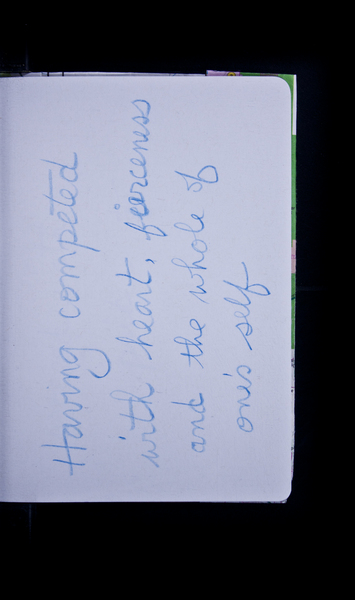 Having competed
with heart, fierceness
and the whole of
one's self